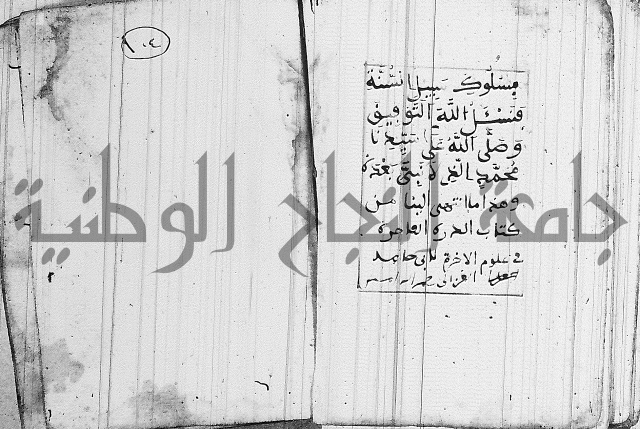 بسلوك سبيل السنة
فنسئل الله التوفيق
وصلى الله على سيدنا
محمد الذي لا نبي بعده
وهذا ما انتهى الينا من
كتاب الدره الفاخره
في علوم الاخرة لابي حامد
الغزالي
١٠٤
جامعة النجاح الوطنية